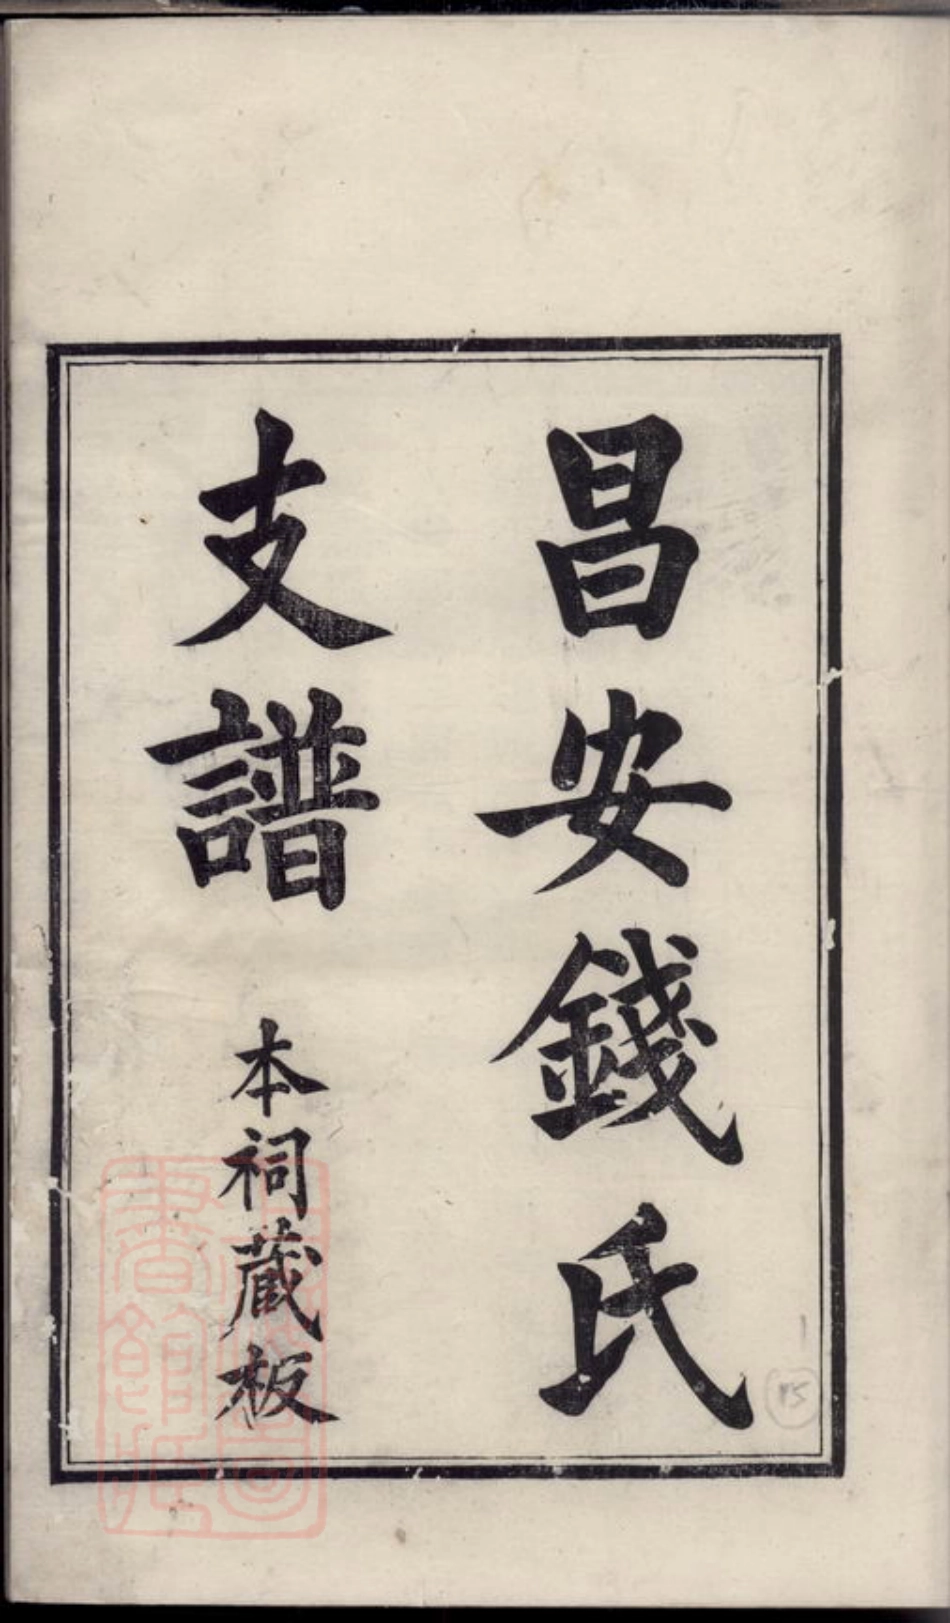 昌安錢氏
支譜
本祠藏板
15